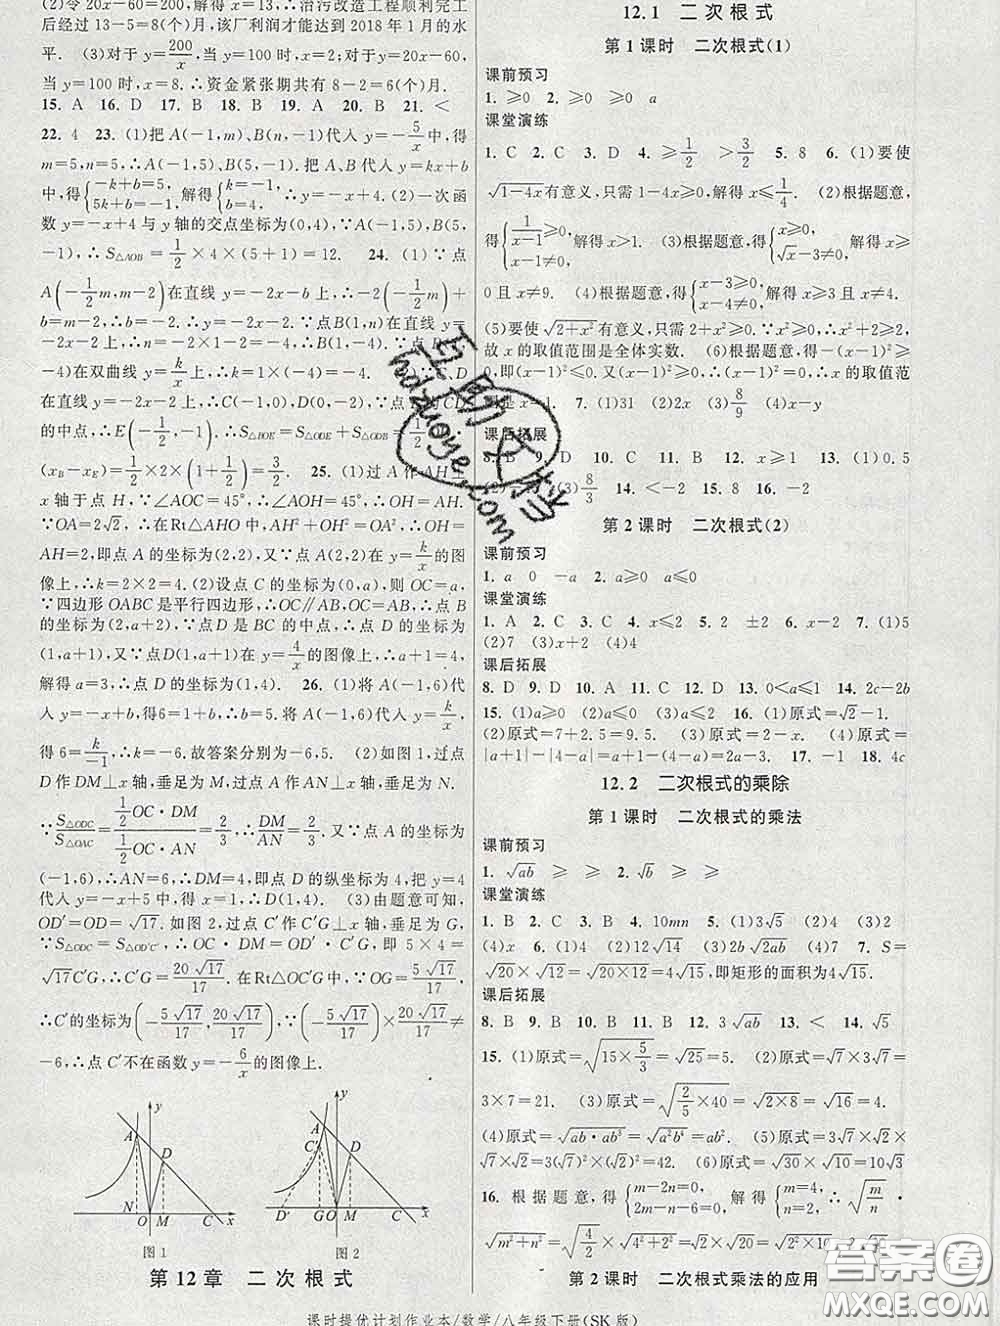 (2)令 20x-60=200,解得 x=13,∴治污改造工程顺利完工
后经过 13-5=8(个)月,该厂利润才能达到 2018 年 1 月的水
平. (3)对于 y=200/x,当 y=100 时,x=2;对于 y=20x-60,
当 y=100 时,x=8,∴资金紧张期共有 8-2=6(个)月.
15. A 16. D 17. B 18. B 19. A 20. B 21. <
22. 4 23. (1)把 A(-1,m)、B(n,-1)代人 y=-5/x中,得
m=5,n=5,∴A(-1,5)、B(5,-1).把 A、B 代人 y=kx+b
中,得{-k+b=5, 5k+b=-1.解得{k=-1, b=4. ∴y=-x+4. (2)一次函
数 y=-x+4 与 y 轴的交点坐标为(0,4),∵A(-1,5)、B(5,
-1),∴S△AOB=1/2×4×(5+1)=12. 24. (1)∵点
A(-1/2m,m-2)在直线 y=-2x-b 上,∴-2(-1/2m)+
b=m-2,∴b=-2,∴y=-2x-2.∵点B(1,n)在直线 y=
-2x-2 上,∴n=-2×1-2=-4,∴B(1,-4).
-4)在双曲线 y=k/x上,∴k=-4.
在直线 y=-2x-2 上,∴C(-1,0)、D(0,-2),
的中点,∴E(-1/2,-1),∴S△BOE=S△ODE+S△ODB=1/2·
(xB-xE)=1/2×2×(1+1/2)=3/2. 25. (1)过 A 作 AH⊥
x 轴于点 H,∵∠AOC=45°,∴∠AOH=45°,∴AH=OH.
∵OA=2√2,∴在Rt△AHO中,AH²+OH²=OA²,∴OH=
AH=2,即点 A 的坐标为(2,2),又∵点 A 在 y=k/x的图
像上,∴k=2×2=4. (2)设点 C 的坐标为(0,a),则 OC=a.
∵四边形 OABC 是平行四边形,∴OC∥AB,OC=AB,∴点 B
的坐标为(2,a+2);∵点D 是 BC 的中点,∴点 D 的坐标为
(1,a+1),又∵点 D(1,a+1)在 y=4/x的图像上,∴a+1=4,
解得 a=3,∴点 D 的坐标为(1,4). 26. (1)将 A(-1,6)代
人 y=-x+b,得6=1+b,∴b=5.将 A(-1,6)代人 y=k/x,
得 6=k/-1,∴k=-6.故答案分别为-6,5. (2)如图 1,过点
D 作 DM⊥x 轴,垂足为 M,过点 A 作 AN⊥x 轴,垂足为 N.
∵S△ODC/S△OAC=(1/2OC·DM)/(1/2OC·AN)=2/3,∴DM/AN=2/3.又∵点 A 的坐标为
(-1,6),∴AN=6,∴DM=4,即点 D 的纵坐标为 4,把 y=4
代人 y=-x+5 中,得 x=1,∴D(1,4). (3)由题意可知,
OD′=OD=√17.如图 2,过点 C′作 C′G⊥x 轴,垂足为 G,
∵S△ODC=S△OD′C′,∴OC·DM=OD′·C′G,即 5×4=
√17C′G,∴C′G=20√17/17.在 Rt△OC′G 中,∵OG=5√17/17,
∴C′的坐标为(-5√17/17,20√17/17),∵(-5√17/17)×20√17/17≠
-6,∴点 C′不在函数 y=-6/x的图像上.
y A D N O M C x 图 1
y A C′ D D′ G O M C x 图 2
第 12 章 二 次 根 式
12.1 二 次 根 式
第 1 课时 二次根式(1)
课前预习
1. ≥0 2. ≥0 ≥0 a
课堂演练
1. C 2. C 3. D 4. ≥1/2 >3/2 5. 8 6. (1)要使
√1-4x有意义,只需 1-4x≥0,解得 x≤1/4. (2)根据题意,
得{1/x-1≥0, x-1≠0.解得 x>1. (3)根据题意,得{x≥0, √x-3≠0,解得 x≥
0且 x≠9. (4)根据题意,得{x-3≥0, x-4≠0.解得 x≥3 且 x≠4.
(5)要使√2+x²有意义,只需 2+x²≥0.∵x²≥0,∴x²+2≥2,
故 x 的取值范围是全体实数. (6)根据题意,得-(x-1)²≥
0,即(x-1)²≤0.又∵(x-1)²≥0,∴x-1=0,∴x 的取值范
围是 x=1. 7. (1)31 (2)2x (3)8/9 (4)x-y
课后拓展
8. B 9. D 10. C 11. B 12. x≥1 13. (1)0.5
(3)8/3 14. <-2 15. 8 16. -2
第 2 课时 二次根式(2)
课前预习
1. a 0 -a 2. a≥0 a≤0
课堂演练
1. A 2. C 3. C 4. x≤2 5. 2 ±2 6. x-2 7. (1)5
(2)7 (3)x+2 (4)4
课后拓展
8. D 9. D 10. C 11. A 12. D 13. 0<a≤1 14. 2c-2b
15. (1)a≥0 (2)a≤0 (3)a≤2 16. (1)原式=√2-1.
(2)原式=7+2.5=9.5. (3)原式=2-x. (4)原式=
|a+1|-|4-a|=a+1-(4-a)=2a-3. 17. -1 18. 4c
12.2 二次根式的乘除
第 1 课时 二次根式的乘法
课前预习
1. √ab ≥ ≥ 2. √b ≥ ≥
课堂演练
1. B 2. C 3. B 4. 10mn 5. (1)3√5 (2)3 (3)2
(4)x 6. (1)10 (2)12√14 (3)2b√2ab (4)7 7. S=
√20×√12=√20×12=4√15,即矩形的面积为4√15.
课后拓展
8. B 9. B 10. B 11. B 12. 3√ab 13. < 14. √5
15. (1)原式=√15×5/3=√25=5. (2)原式=√7×3√7=
3×7=21. (3)原式=√2/5×40=√2×8=√16=4.
(4)原式=√ab·ab³=√a²b⁴=ab². (5)原式=3√7×√7×
√2×√2=3(√7)²×(√2)²=42. (6)原式=√30×√10=10√3.
16. 根据题意,得{m-2n=0, 2m-n-6=0,解得{m=4, n=2,∴√m/n·
√m²+n²=√4/2×√4²+2²=√2×√20=2√10.
第 2 课时 二次根式乘法的应用
课时提优计划作业本/数学/八年级下册(SK 版)
互动文档
hdzuoye.com
答案圈
MXQE.COM